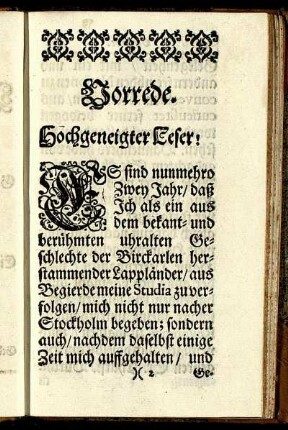 Vorrede.
Hochgeneigter Leser!
ES sind nunmehro
Zwey Jahr/ daß
Ich als ein aus
dem bekant- und
berühmten uhralten Ge-
schlechte der Birckarlen her-
stammender Lappländer/ aus
Begierde meine Studia zu ver-
folgen/ mich nicht nur nacher
Stockholm begeben; sondern
auch/ nachdem daselbst einige
Zeit mich auffgehalten/ und
)( 2 Ge-